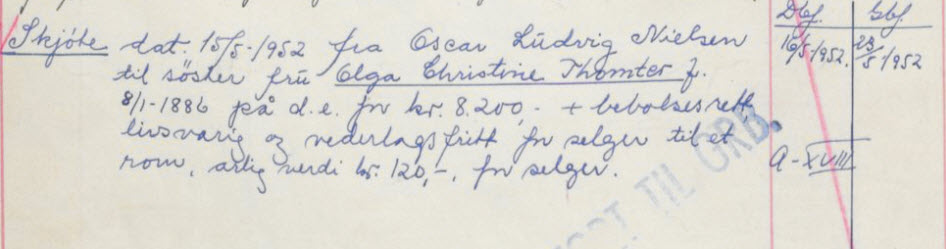 Dbf. Gbf.
Skjöte dat. 15/5-1952 fra Oscar Ludvig Nielsen 16/5 1952. 23/5 1952
til söster frü Olga Christine Thomter f.
8/1-1886 på d.e. for kr. 8.200,- + beboelsesrett
livsvarig og vederlagsfritt for selger til et
rom, årlig verdi kr. 120,-, for selger. A-XVIII
TIL GRB.